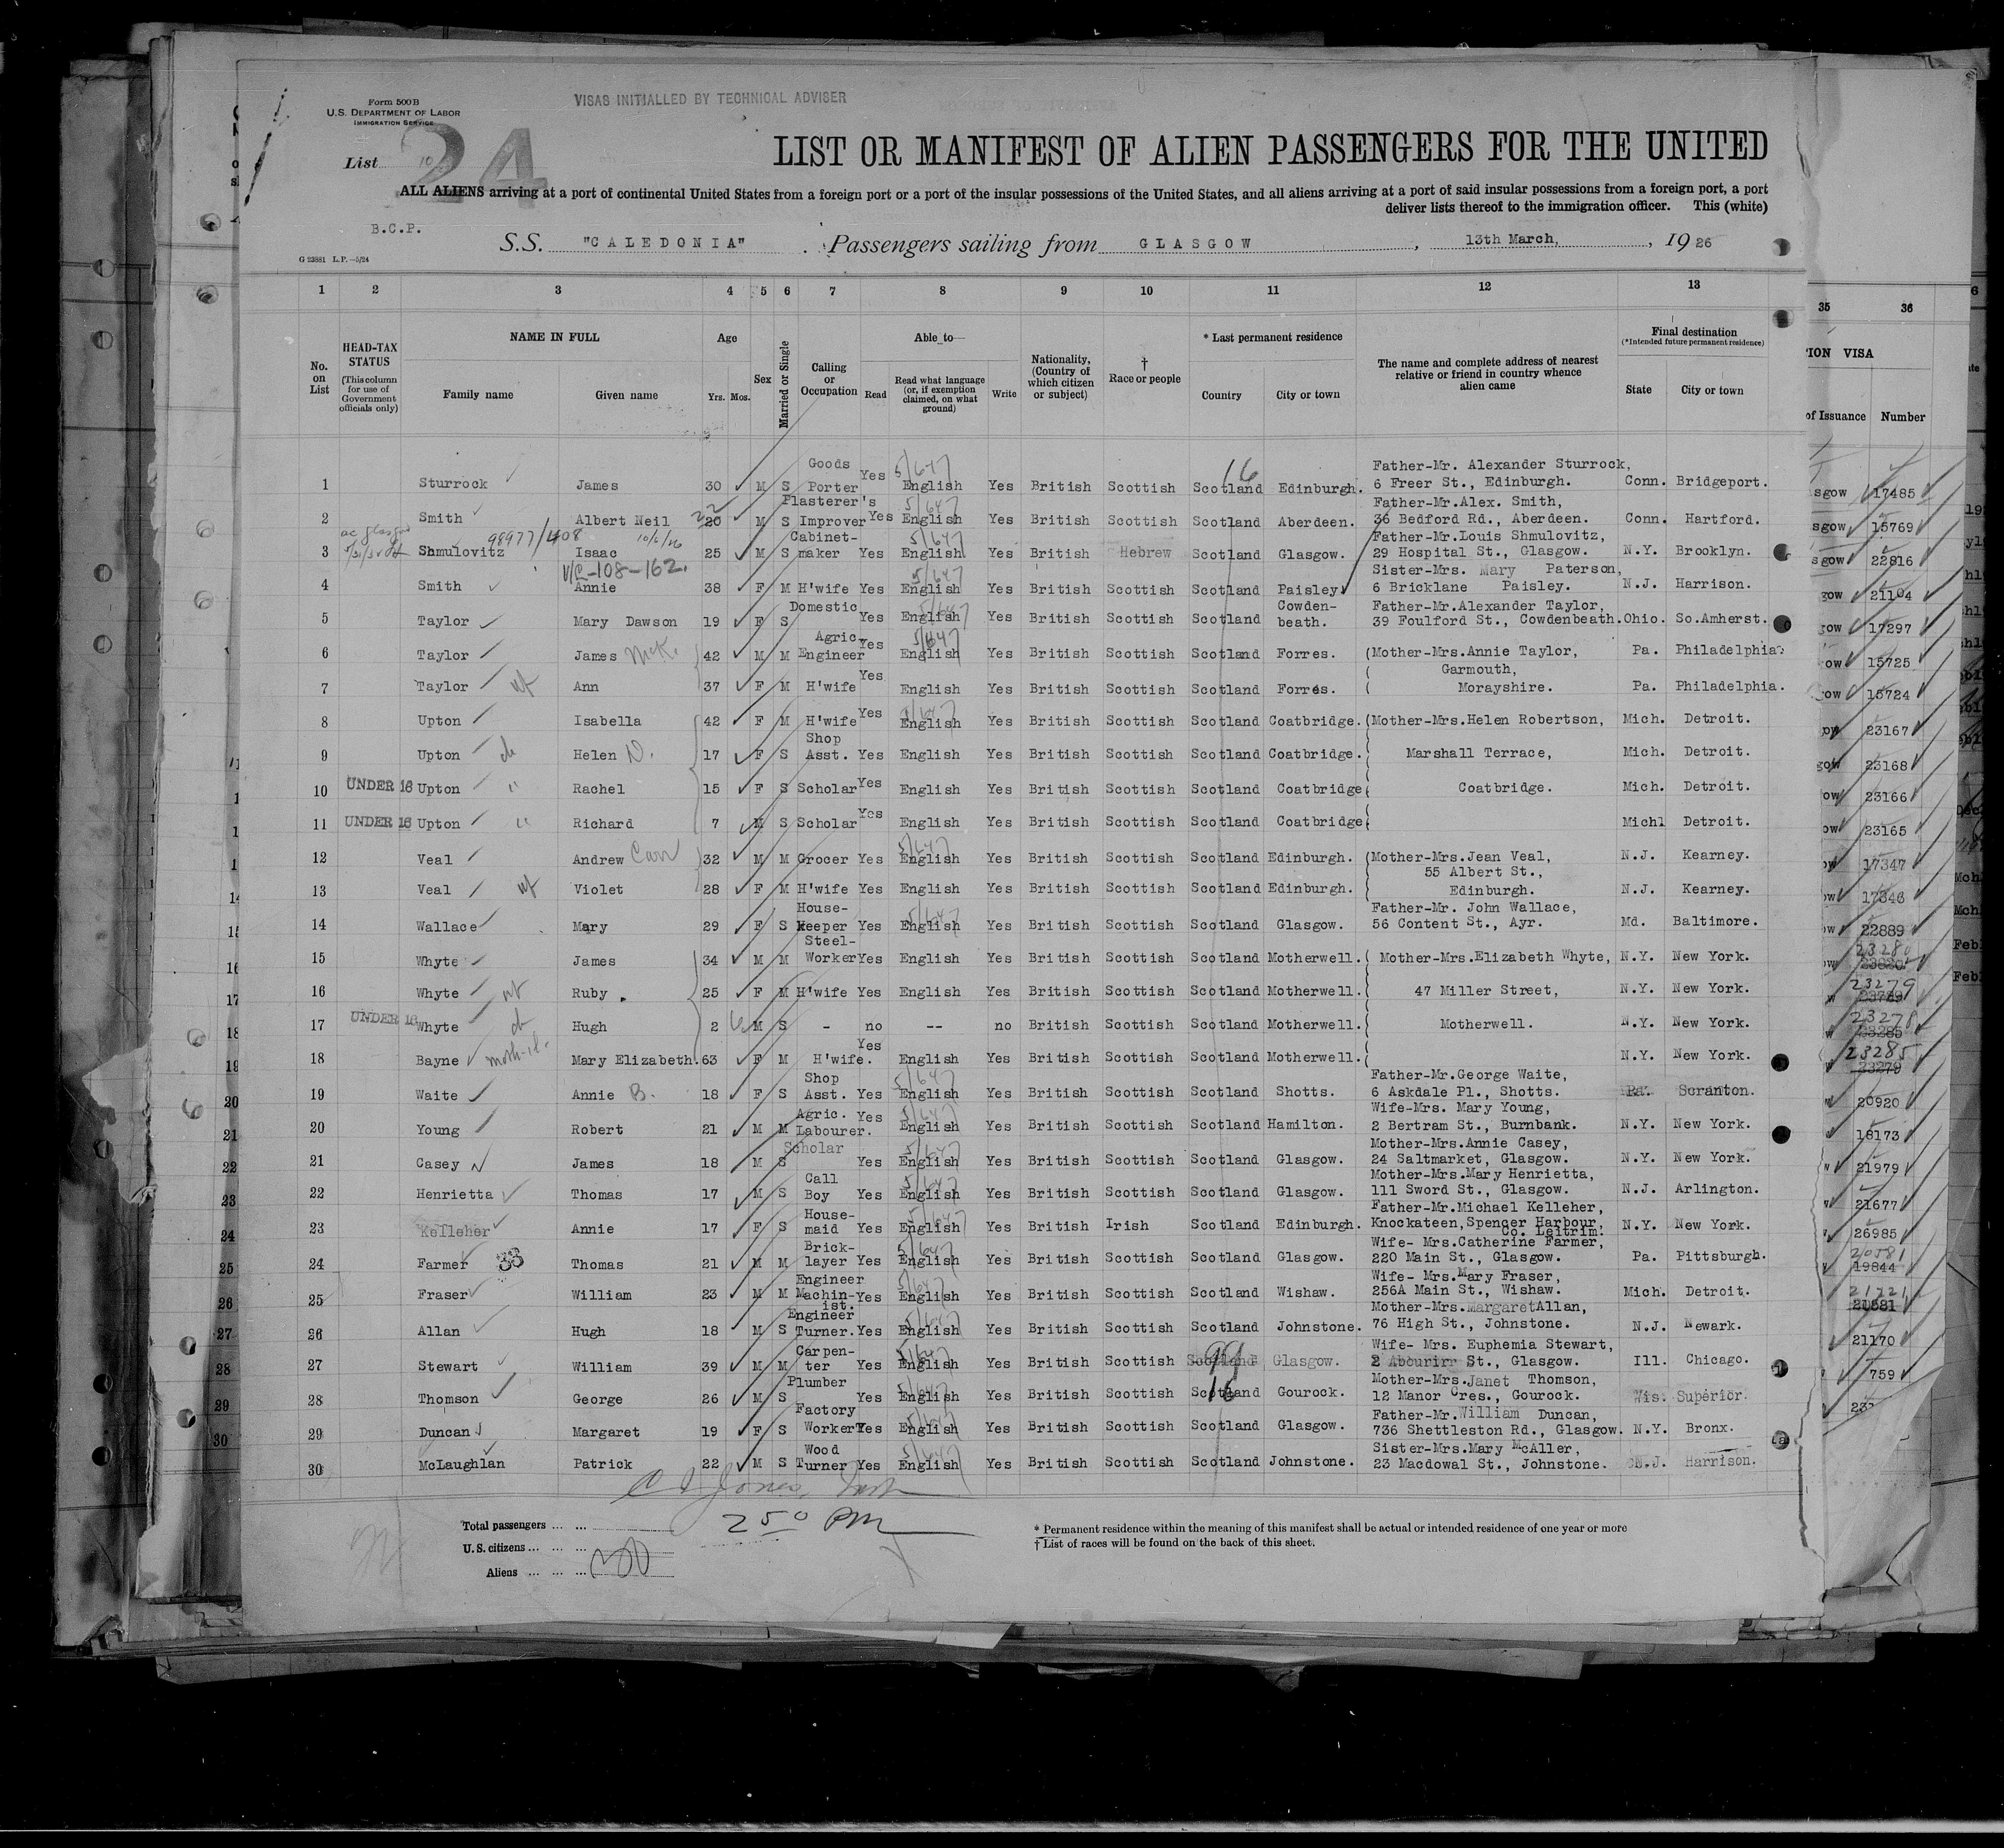 Form 500B
U.S. DEPARTMENT OF LABOR
IMMIGRATION SERVICE
VISAS INITIALLED BY TECHNICAL ADVISER
24
List 10
LIST OR MANIFEST OF ALIEN PASSENGERS FOR THE UNITED
ALL ALIENS arriving at a port of continental United States from a foreign port or a port of the insular possessions of the United States, and all aliens arriving at a port of said insular possessions from a foreign port, a port
deliver lists thereof to the immigration officer. This (white)
B.C.P.
S.S. "CALEDONIA" Passengers sailing from GLASGOW, 13th March, 1926
G 23881 L.P.—5/24
1 2 3 4 5 6 7 8 9 10 11 12 13 35 36
No. on List
HEAD-TAX STATUS (This column for use of Government officials only)
NAME IN FULL
Family name Given name
Age Yrs. Mos.
Sex
Married or Single
Calling or Occupation
Able to—
Read Read what language (or, if exemption claimed, on what ground) Write
Nationality, (Country of which citizen or subject)
† Race or people
* Last permanent residence
Country City or town
The name and complete address of nearest relative or friend in country whence alien came
Final destination
(*Intended future permanent residence)
State City or town
ION VISA
of Issuance Number
1 Sturrock James 30 M S Goods Porter Yes 5/647 English Yes British Scottish 16 Scotland Edinburgh. Father-Mr. Alexander Sturrock, 6 Freer St., Edinburgh. Conn. Bridgeport. sgow 17485
2 Smith Albert Neil 22 20 M S Plasterer's Improver Yes 5/647 English Yes British Scottish Scotland Aberdeen. Father-Mr.Alex. Smith, 36 Bedford Rd., Aberdeen. Conn. Hartford. sgow 15769
3 Shmulovitz 98977/408 Isaac 25 M S Cabinet-maker Yes 5/647 English Yes British Hebrew Scotland Glasgow. Father-Mr.Louis Shmulovitz, 29 Hospital St., Glasgow. N.Y. Brooklyn. sgow 22816
V/C-108-162.
4 Smith Annie 38 F M H'wife Yes 5/647 English Yes British Scottish Scotland Paisley Sister-Mrs. Mary Paterson, 6 Bricklane Paisley. N.J. Harrison. gow 21104
5 Taylor Mary Dawson 19 F S Domestic Yes 5/647 English Yes British Scottish Scotland Cowden-beath. Father-Mr.Alexander Taylor, 39 Foulford St., Cowdenbeath. Ohio. So.Amherst. gow 17297
6 Taylor James McK. 42 M M Agric. Engineer Yes 5/647 English Yes British Scottish Scotland Forres. (Mother-Mrs.Annie Taylor, Pa. Philadelphia ow 15725
7 Taylor wf Ann 37 F M H'wife Yes English Yes British Scottish Scotland Forres. Garmouth, Morayshire. Pa. Philadelphia. gow 15724
8 Upton Isabella 42 F M H'wife Yes 5/647 English Yes British Scottish Scotland Coatbridge. (Mother-Mrs.Helen Robertson, Mich. Detroit. ow 23167
9 Upton ch Helen D. 17 F S Shop Asst. Yes English Yes British Scottish Scotland Coatbridge. Marshall Terrace, Mich. Detroit. gow 23168
10 UNDER 16 Upton " Rachel 15 F S Scholar Yes English Yes British Scottish Scotland Coatbridge Coatbridge. Mich. Detroit. ow 23166
11 UNDER 16 Upton " Richard 7 M S Scholar Yes English Yes British Scottish Scotland Coatbridge Michl Detroit. ow 23165
12 Veal Andrew Carr 32 M M Grocer Yes 5/647 English Yes British Scottish Scotland Edinburgh. (Mother-Mrs.Jean Veal, N.J. Kearney. ow 17347
13 Veal wf Violet 28 F M H'wife Yes English Yes British Scottish Scotland Edinburgh. 55 Albert St., Edinburgh. N.J. Kearney. ow 17346
14 Wallace Mary 29 F S House-keeper Yes 5/647 English Yes British Scottish Scotland Glasgow. Father-Mr. John Wallace, 56 Content St., Ayr. Md. Baltimore. ow 22889
15 Whyte James 34 M M Steel-Worker Yes English Yes British Scottish Scotland Motherwell. (Mother-Mrs.Elizabeth Whyte, N.Y. New York.
16 Whyte wf Ruby 25 F M H'wife Yes English Yes British Scottish Scotland Motherwell. 47 Miller Street, N.Y. New York. 23279
17 UNDER 16 Whyte ch Hugh 2 M S - no -- no British Scottish Scotland Motherwell. Motherwell. N.Y. New York. 23278 23285
18 Bayne Mary Elizabeth. 63 F M H'wife. Yes English Yes British Scottish Scotland Motherwell. N.Y. New York. 23285 23279
19 Waite Annie B. 18 F S Shop Asst. Yes 5/647 English Yes British Scottish Scotland Shotts. Father-Mr.George Waite, 6 Askdale Pl., Shotts. Pa. Scranton. 20920
20 Young Robert 21 M M Agric. Labourer. Yes 5/647 English Yes British Scottish Scotland Hamilton. Wife-Mrs. Mary Young, 2 Bertram St., Burnbank. N.Y. New York. 18173
21 Casey James 18 M S Scholar Yes 5/647 English Yes British Scottish Scotland Glasgow. Mother-Mrs.Annie Casey, 24 Saltmarket, Glasgow. N.Y. New York. 21979
22 Henrietta Thomas 17 M S Call Boy Yes 5/647 English Yes British Scottish Scotland Glasgow. Mother-Mrs.Mary Henrietta, 111 Sword St., Glasgow. N.J. Arlington. 21677
23 Kelleher Annie 17 F S House-maid Yes 5/647 English Yes British Irish Scotland Edinburgh. Father-Mr.Michael Kelleher, Knockateen,Spencer Harbour, Co. Leitrim. N.Y. New York. 26985
24 Farmer 33 Thomas 21 M M Brick-layer Yes 5/647 English Yes British Scottish Scotland Glasgow. Wife- Mrs.Catherine Farmer, 220 Main St., Glasgow. Pa. Pittsburgh. 20581 19844
25 Fraser William 23 M M Engineer Machin-ist. Yes 5/647 English Yes British Scottish Scotland Wishaw. Wife- Mrs.Mary Fraser, 256A Main St., Wishaw. Mich. Detroit. 21881
26 Allan Hugh 18 M S Engineer Turner. Yes 5/647 English Yes British Scottish Scotland Johnstone. Mother-Mrs.Margaret Allan, 76 High St., Johnstone. N.J. Newark. 21170
27 Stewart William 39 M M Carpen-ter Yes 5/647 English Yes British Scottish 99 Scotland Glasgow. Wife- Mrs. Euphemia Stewart, 2 St., Glasgow. Ill. Chicago. 759
28 Thomson George 26 M S Plumber Yes 5/647 English Yes British Scottish 16 Scotland Gourock. Mother-Mrs.Janet Thomson, 12 Manor Cres., Gourock. Wis. Superior. 23
29 Duncan Margaret 19 F S Factory Worker Yes 5/647 English Yes British Scottish Scotland Glasgow. Father-Mr.William Duncan, 736 Shettleston Rd., Glasgow. N.Y. Bronx.
30 McLaughlan Patrick 22 M S Wood Turner Yes 5/647 English Yes British Scottish Scotland Johnstone. Sister-Mrs.Mary McAller, 23 Macdowal St., Johnstone. N.J. Harrison.
250 PM
Total passengers ... ...
U.S. citizens ... ... ...
Aliens ... ... ... 30
* Permanent residence within the meaning of this manifest shall be actual or intended residence of one year or more
† List of races will be found on the back of this sheet.